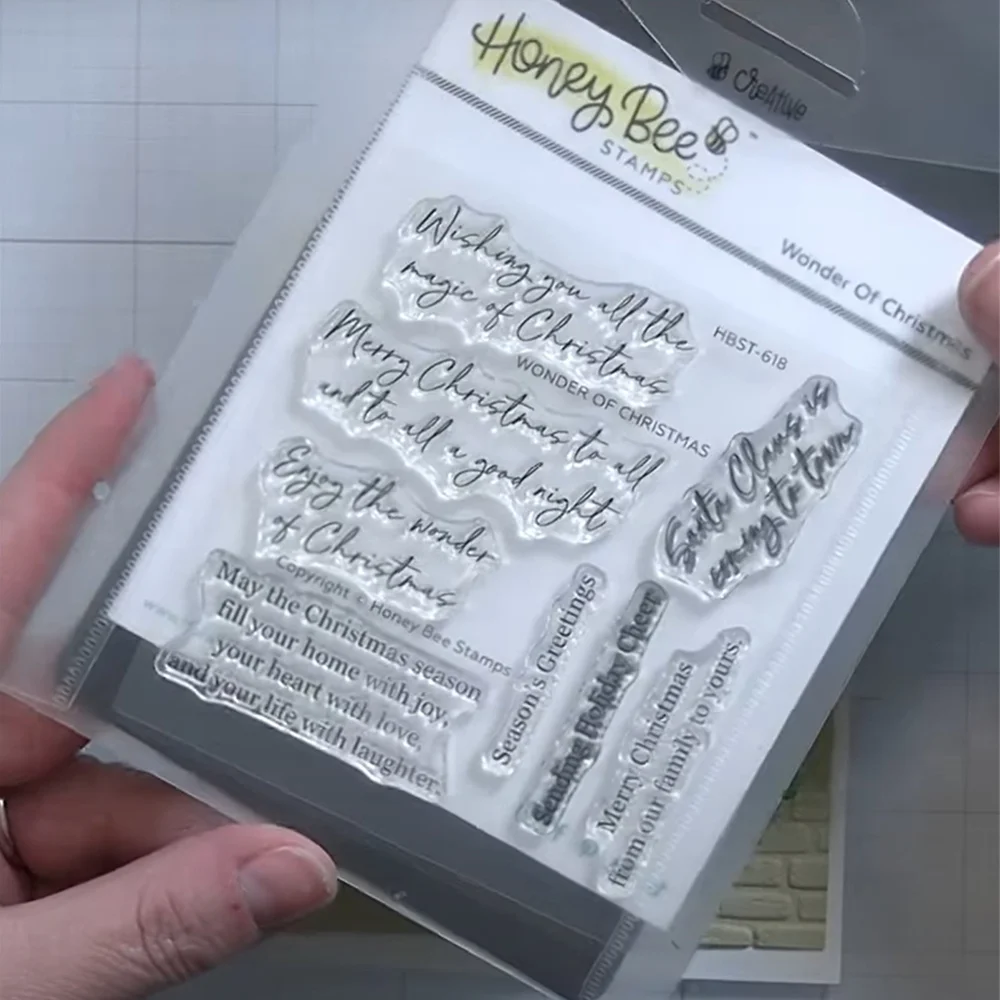 Honey Bee
STAMPS
Bee Creative
Wonder Of Christmas
HBST-618
Wishing you all the
magic of Christmas
WONDER OF CHRISTMAS
Merry Christmas to all
and to all a good night
Santa Claus is
coming to town
Enjoy the wonder
of Christmas
Copyright © Honey Bee Stamps
www.
May the Christmas season
fill your home with joy,
your heart with love,
and your life with laughter.
Season's Greetings
Sending Holiday Cheer
Merry Christmas
from our family to yours.